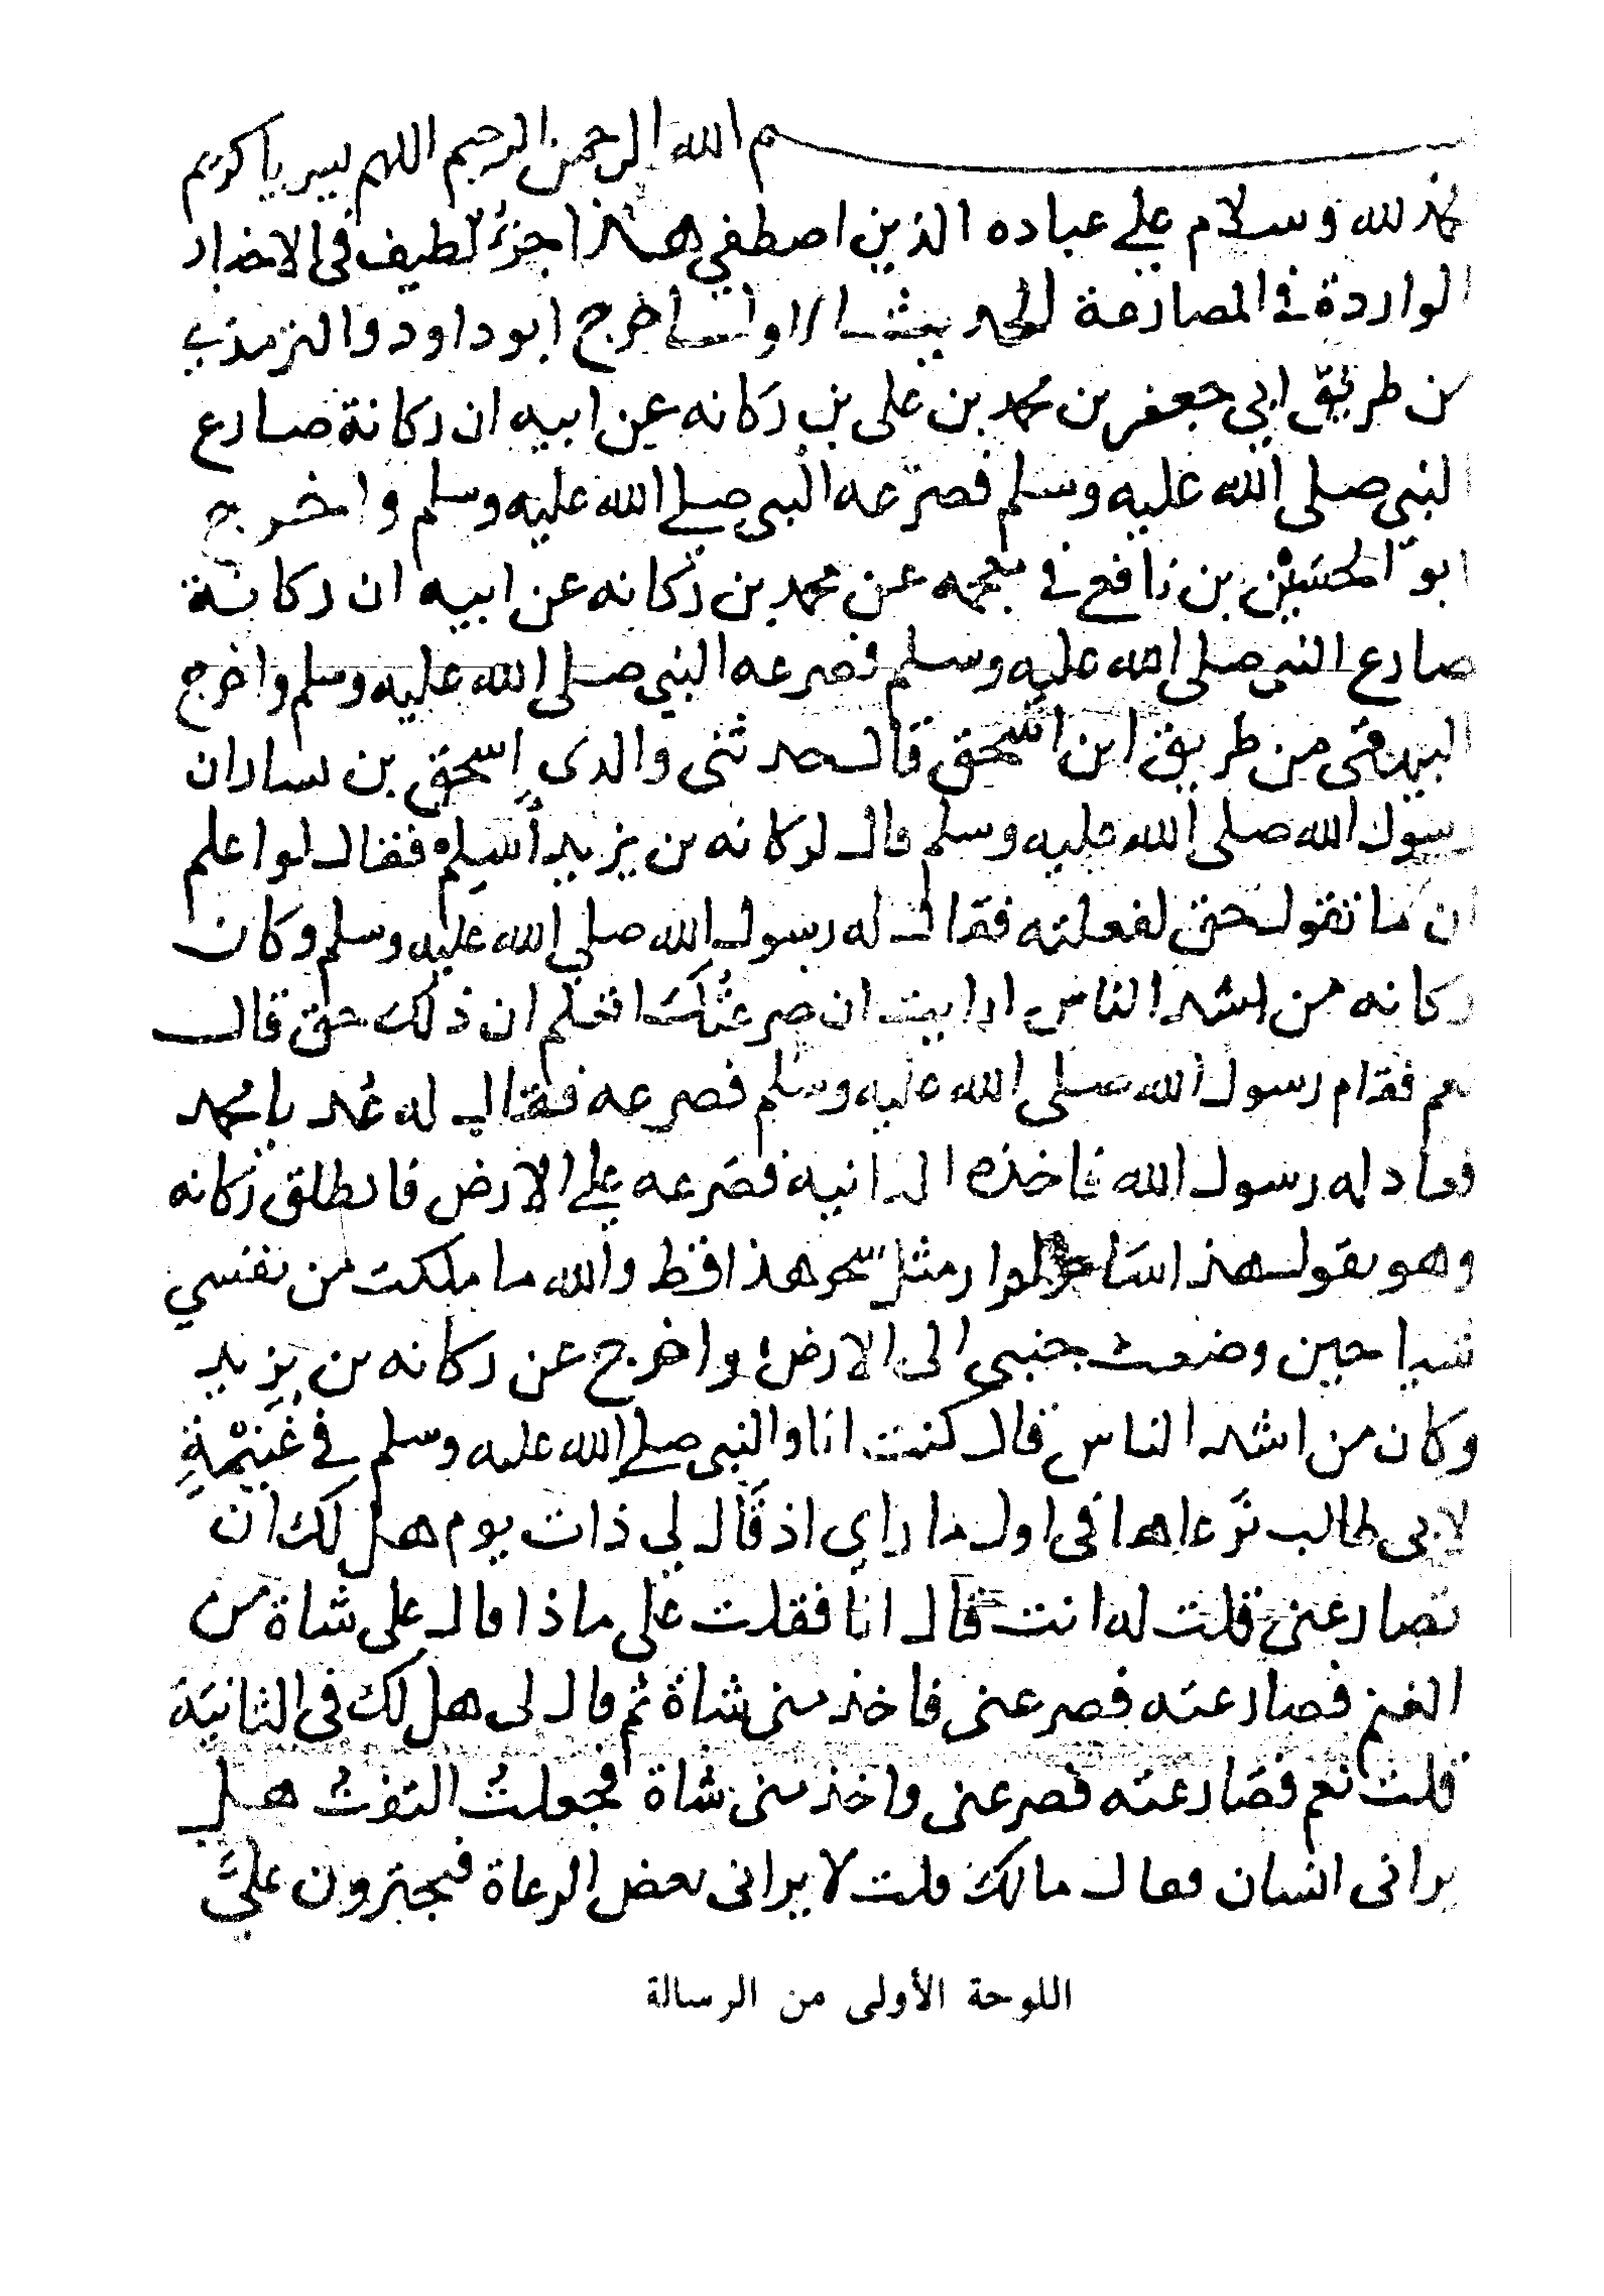 بسم الله الرحمن الرحيم اللهم يسر يا كريم
الحمد لله وسلام على عباده الذين اصطفي هذا جزء لطيف في الاخبار
الواردة في المصارعة الحديث الاول اخرج ابو داود والترمذي
من طريق ابي جعفر بن محمد بن علي بن ركانه عن ابيه ان ركانة صارع
النبي صلى الله عليه وسلم فصرعه النبي صلى الله عليه وسلم واخرج
ابو الحسين بن نافع في معجمه عن محمد بن ركانه عن ابيه ان ركانة
صارع النبي صلى الله عليه وسلم فصرعه النبي صلى الله عليه وسلم واخرج
البيهقي من طريق ابن اسحق قال حدثني والدي اسحق بن يسار ان
رسول الله صلى الله عليه وسلم قال لركانه بن يزيد أسلم فقال لو اعلم
ان ما تقول حق لفعلته فقال له رسول الله صلى الله عليه وسلم وكان
ركانه من اشد الناس ارايت ان صرعتك اتعلم ان ذلك حق قال
نعم فقام رسول الله صلى الله عليه وسلم فصرعه فقال له عد يا محمد
فعاد له رسول الله فاخذه الثانيه فصرعه على الارض فانطلق ركانه
وهو يقول هذا ساحر لم ار مثل سحر هذا قط والله ما ملكت من نفسي
شيا حين وضعت جنبي الى الارض واخرج عن ركانه بن يزيد
وكان من اشد الناس قال كنت انا والنبي صلى الله عليه وسلم في غُنَيْمَةٍ
لابي طالب نرعاها في اول ما راي اذ قال لي ذات يوم هل لك ان
تصارعني قلت له انت قال انا فقلت على ماذا قال على شاة من
الغنم فصارعته فصرعني فاخذ مني شاة ثم قال لي هل لك في الثانية
قلت نعم فصارعته فصرعني واخذ مني شاة فجعلت التفت هل
يراني انسان فقال مالك قلت لا يراني بعض الرعاة فيجترون عليَّ
اللوحة الأولى من الرسالة